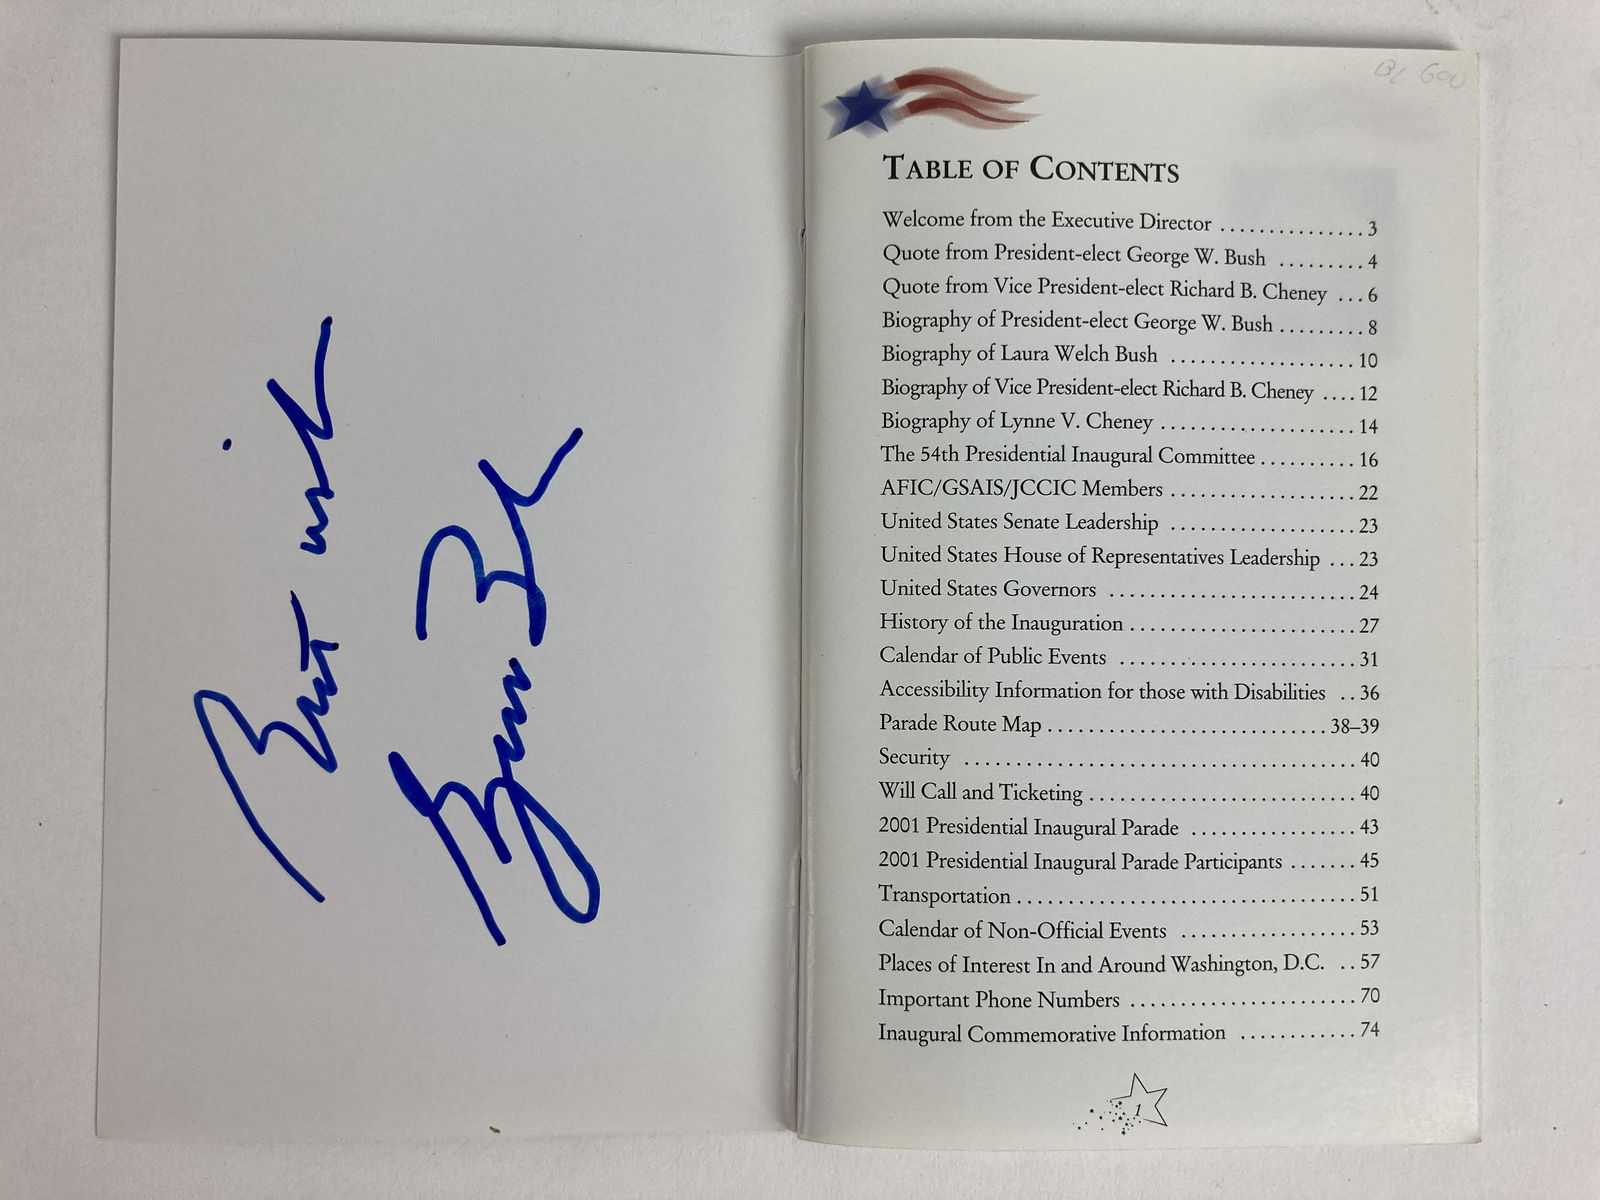 Best wishes
George Bush
TABLE OF CONTENTS
Welcome from the Executive Director ............... 3
Quote from President-elect George W. Bush ......... 4
Quote from Vice President-elect Richard B. Cheney ... 6
Biography of President-elect George W. Bush ......... 8
Biography of Laura Welch Bush .................. 10
Biography of Vice President-elect Richard B. Cheney .... 12
Biography of Lynne V. Cheney .................... 14
The 54th Presidential Inaugural Committee .......... 16
AFIC/GSAIS/JCCIC Members ................... 22
United States Senate Leadership .................. 23
United States House of Representatives Leadership ... 23
United States Governors ........................ 24
History of the Inauguration ....................... 27
Calendar of Public Events ....................... 31
Accessibility Information for those with Disabilities .. 36
Parade Route Map ............................ 38–39
Security ...................................... 40
Will Call and Ticketing .......................... 40
2001 Presidential Inaugural Parade ................ 43
2001 Presidential Inaugural Parade Participants ....... 45
Transportation ................................. 51
Calendar of Non-Official Events ................. 53
Places of Interest In and Around Washington, D.C. .. 57
Important Phone Numbers ...................... 70
Inaugural Commemorative Information ............ 74
1